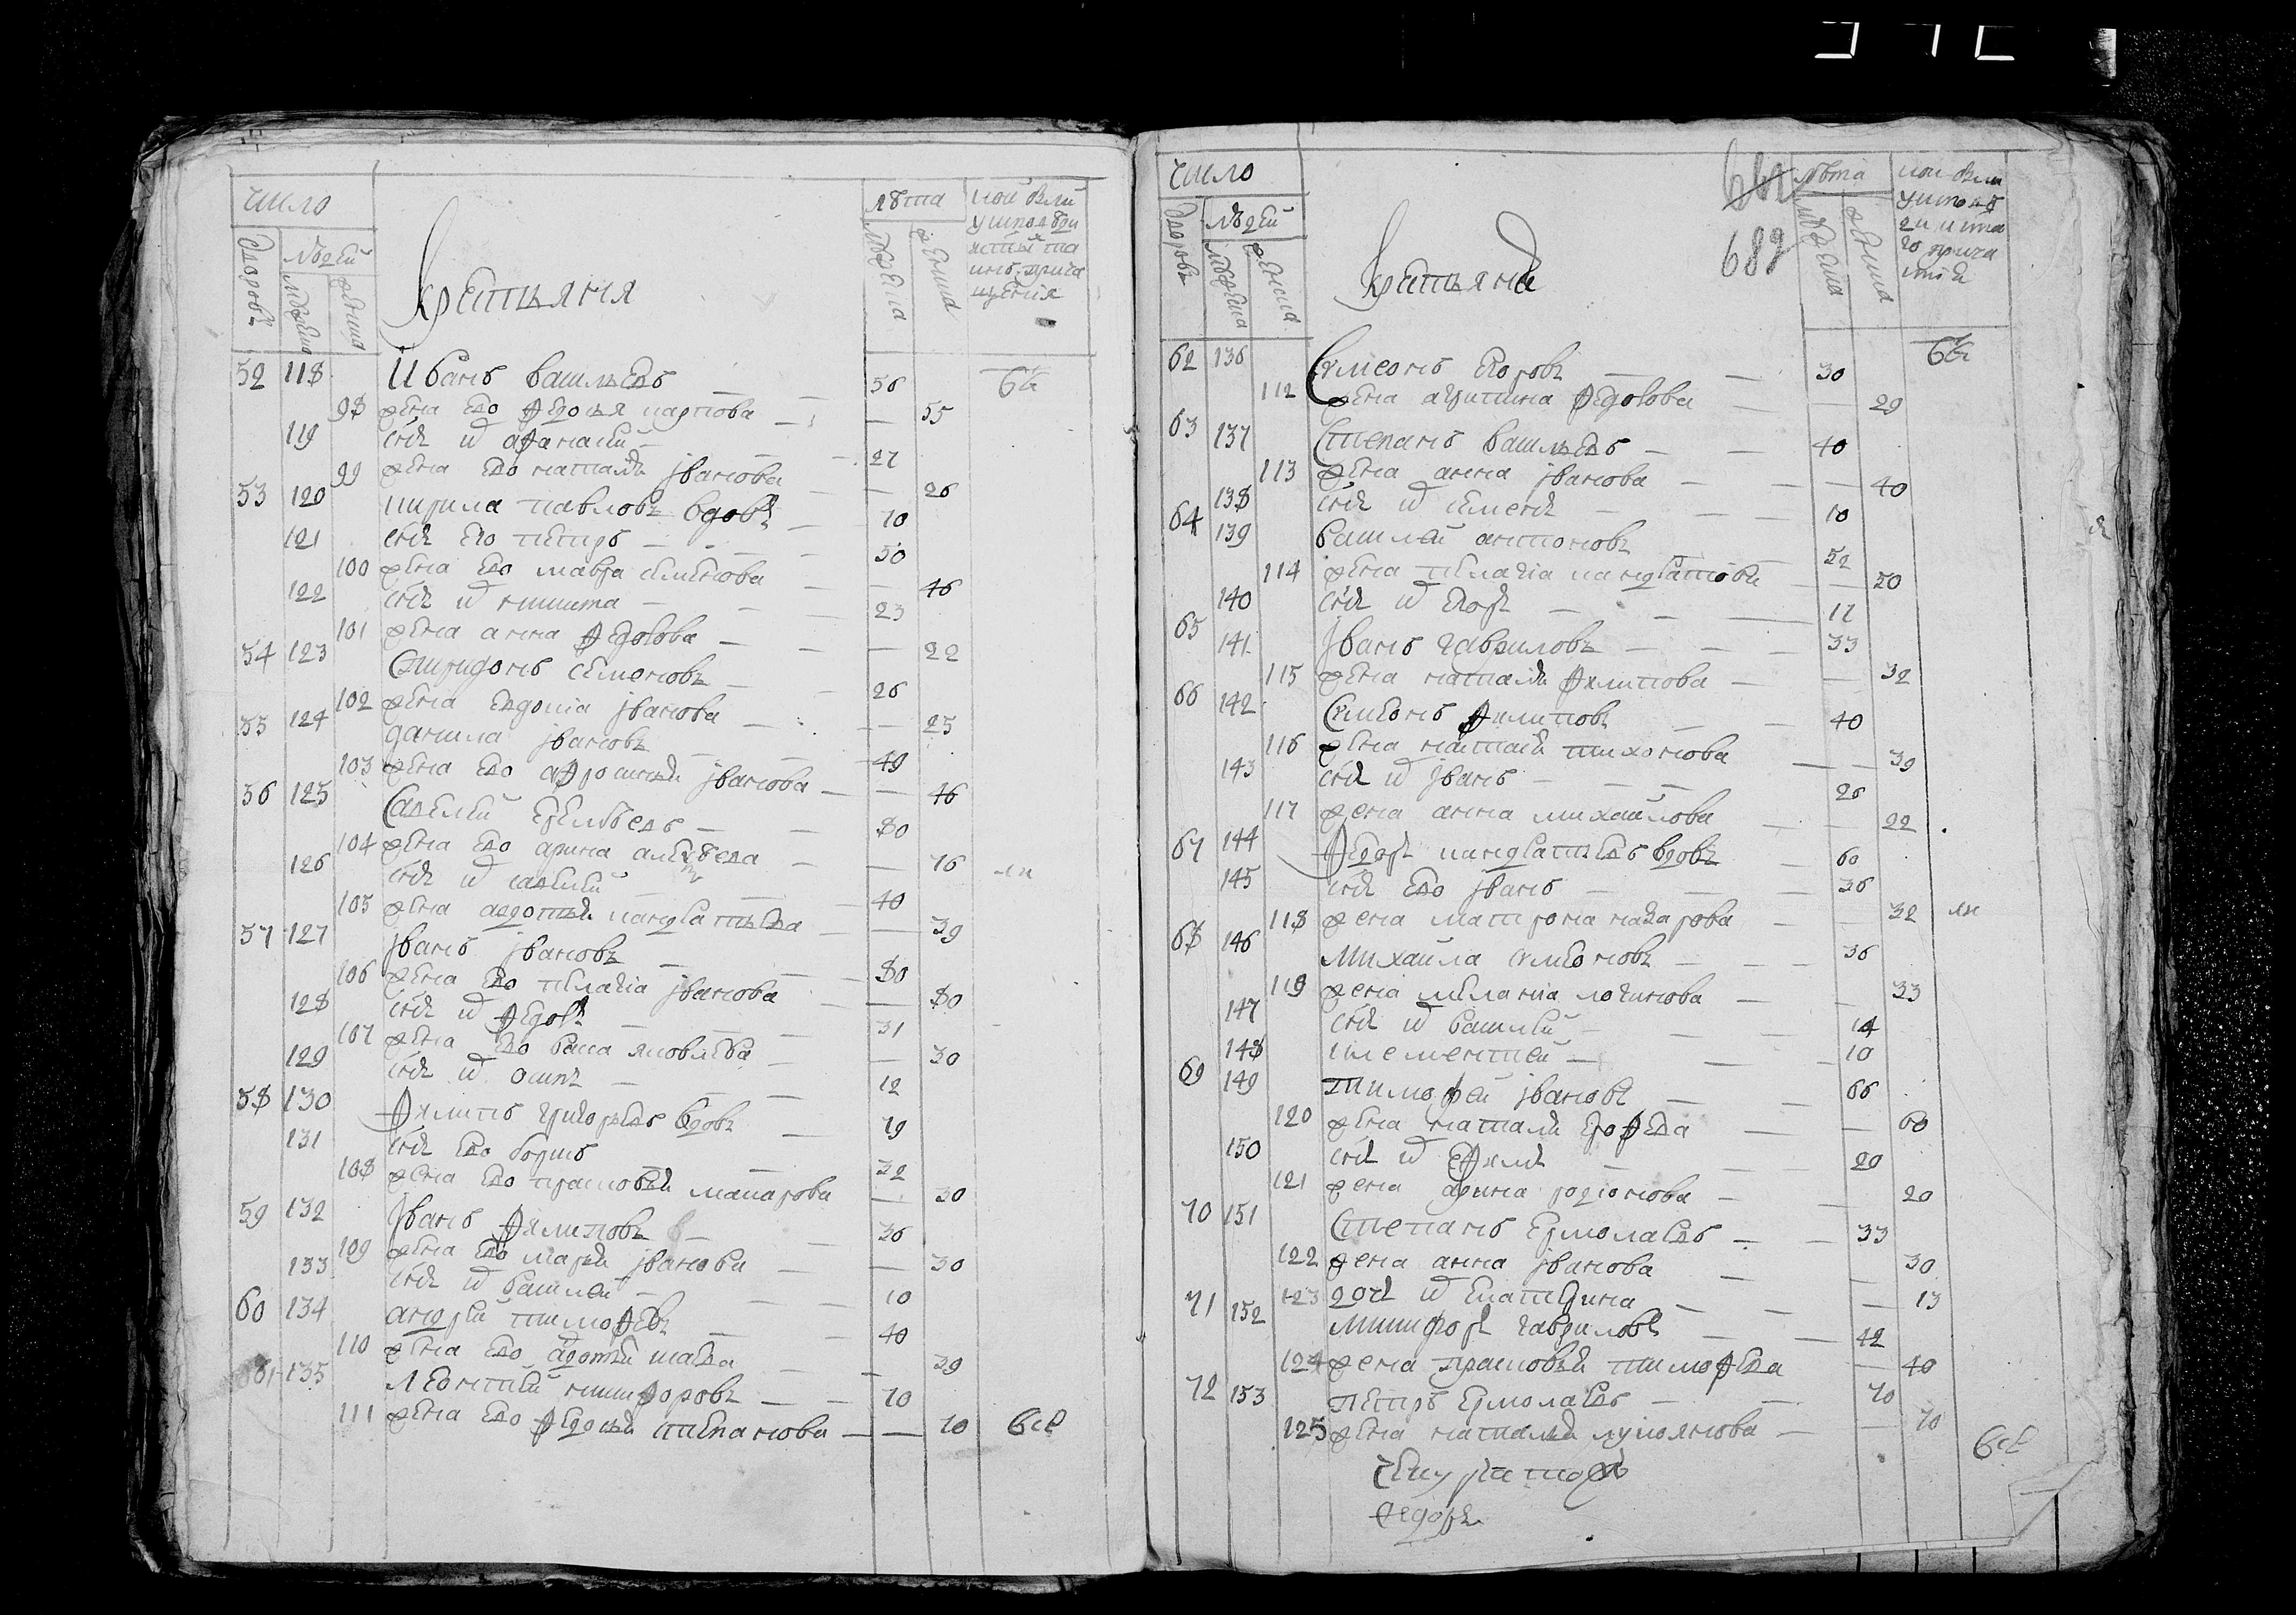 число
дворовъ
людей
мужеска
женска
Крестьяня
лѣта
мужеска
женска
52 118 Иванъ васильевъ — 56
98 жена ево Ѳедосья карпова — 55
119 снъ их аѲанасий — 27
99 жена ево наталья ивановa — 26
53 120 кирила павловъ вдовъ — 70
121 снъ ево петръ — 50
100 жена ево мавра семенова — 46
122 снъ их никита — 23
101 жена анна Ѳедотова — 22
54 123 Спиридонъ семеновъ — 26
102 жена евдокия иванова — 25
55 124 данила ивановъ — 49
103 жена ево аѲросинья иванова — 46
56 125 Савелий еремѣевъ — 80
104 жена ево арина алексѣева — 76
126 снъ их савелий — 40
105 жена авдотья кандратьева — 39
57 127 иванъ ивановъ — 80
106 жена ево пелагія иванова — 80
128 снъ их Ѳедоръ — 31
107 жена ево васа яковлева — 30
129 снъ их осипъ — 12
58 130 Ѳилипъ григорьевъ вдовъ — 79
131 снъ ево борисъ — 32
108 жена ево прасковья макарова — 30
59 132 иванъ Ѳилиповъ — 36
109 жена ево марья иванова — 30
133 снъ их василей — 10
60 134 андрѣй тимоѲевъ — 40
110 жена ево авдотья исаева — 39
61 135 Леонтий никиѲоровъ — 70
111 жена ево Ѳедосья степанова — 70 всѣ
число
дворовъ
людей
мужеска
женска
682
Крестьяня
лѣта
мужеска
женска
62 136 Симеонъ егоровъ — 30
112 жена акулина Ѳедотова — 29
63 137 Степанъ васильевъ — 40
113 жена анна иванова — 40
138 снъ их семенъ — 10
64 139 василей антоновъ — 52
114 жена пелагіа кандратова — 50
140 снъ их егоръ — 12
65 141 иванъ гавриловъ — 33
115 жена наталья Ѳилипова — 32
66 142 Симеонъ Ѳилиповъ — 40
116 жена наталья тихонова — 39
143 снъ их иванъ — 26
117 жена анна михайлова — 22
67 144 Ѳедоръ кандратьевъ вдовъ — 60
145 снъ ево иванъ — 36
118 жена матрона назарова — 32
68 146 Михаила симеоновъ — 36
119 жена меланиа логинова — 33
147 снъ их василий — 14
148 клементей — 10
69 149 тимоѳей ивановъ — 66
120 жена наталья ероѲева — 60
150 снъ их еѲимъ — 20
121 жена арина родіонова — 20
70 151 Степанъ ермолаевъ — 33
122 жена анна иванова — 30
123 дочь их екатерина — 13
71 152 Никифоръ гавриловъ — 42
124 жена прасковья тимоѲева — 40
72 153 петръ ермолаевъ — 70
125 жена наталья лукоянова — 70
всѣ
Ѳедоръ